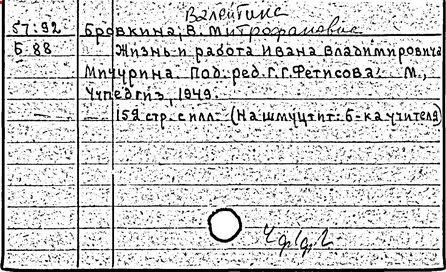 Валентина
57:92 Бровкина, В. Митрофановна
Б.88 Жизнь и работа Ивана Владимировича
Мичурина. Под. ред. Г.Г.Фетисова. М.,
Учпедгиз, 1949.
159 стр. с илл. (На шмуцтит: Б-ка учителя)